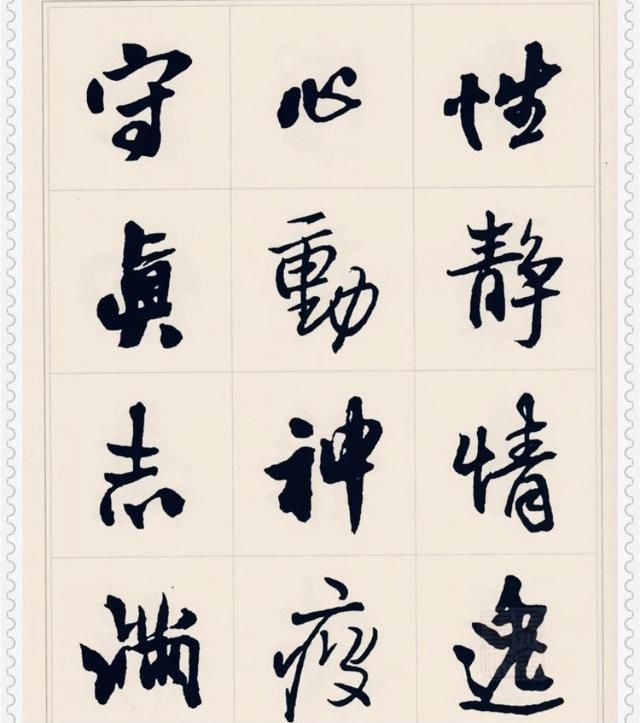 性静情逸
心動神疲
守眞志满